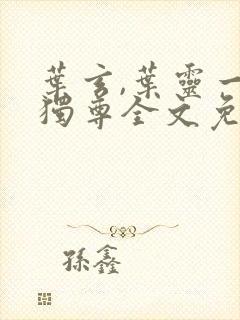 葉玄,葉靈一
獨尊全文免
孫鑫